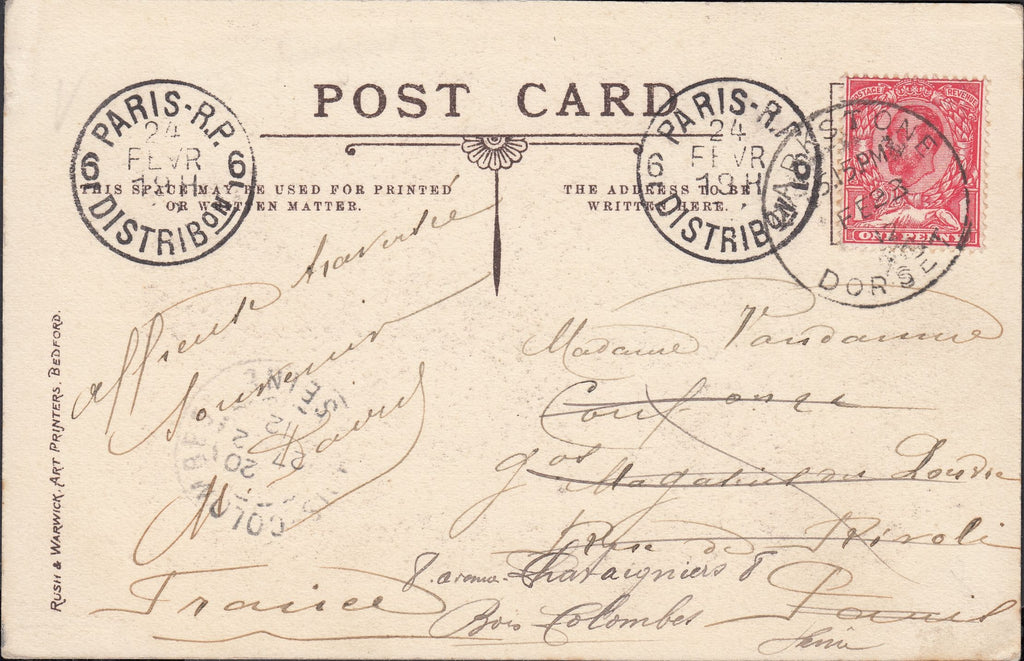 POST CARD
THIS SPACE MAY BE USED FOR PRINTED
OR WRITTEN MATTER.
THE ADDRESS TO BE
WRITTEN HERE.
PARIS-R.P.
24
FEVR
6 6
18 H
DISTRIBON
PARIS-R.P.
24
FEVR
6 6
18 H
DISTRIBON
POSTAGE REVENUE
ONE PENNY
5.15PM
FE 23
DORSET
Affreuse traversée
Souvenir
France
Madame Vandamme
Gds Magasins du Louvre
Rue de Rivoli
Paris
8. avenue Chataigniers 8
Bois Colombes
Seine
SEINE
27
20
12
RUSH & WARWICK, ART PRINTERS, BEDFORD.